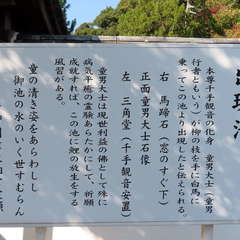 出現池
本尊千手観音の化身 童男大士（童男
行者ともいう）が柳の枝を手に白馬に
乗ってこの池より出現したと伝えられる。
右 馬蹄石（窓のすぐ下）
正面童男大士石像
左 三角堂（千手観音安置）
童男大士は現世利益の佛として殊に
病気平癒の霊験あらたかにして、祈願
成就すれば、この池に鯉の放生をする
風習がある。
童の清き姿をあらわしし
御池の水のいく世すむらん